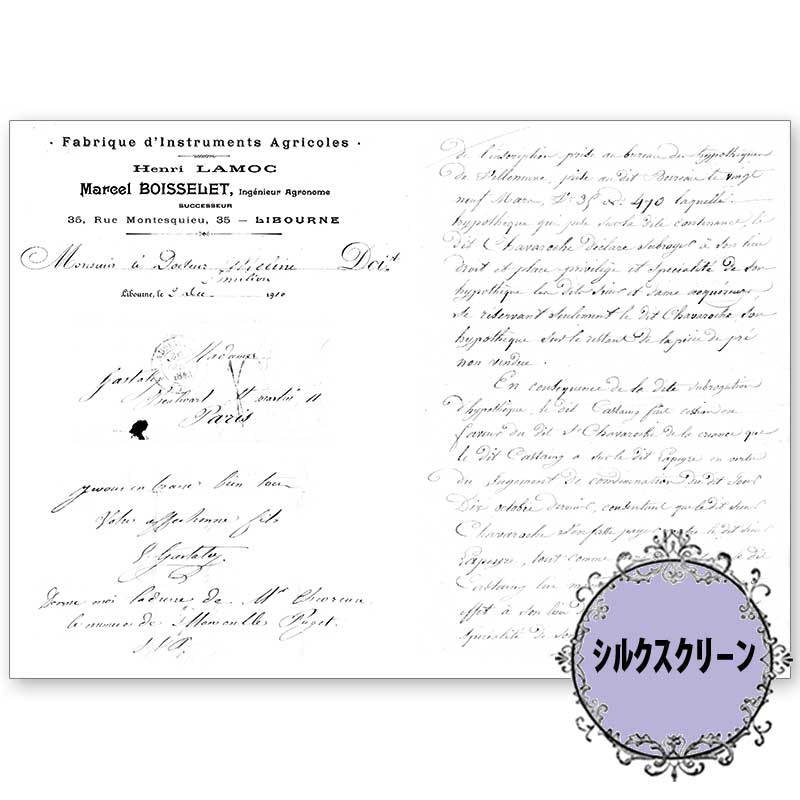 · Fabrique d'Instruments Agricoles ·
Henri LAMOC
Marcel BOISSELET, Ingénieur Agronome
SUCCESSEUR
35, Rue Montesquieu, 35 – LIBOURNE
Monsieur le Docteur Doit
Libourne, le 3 Dec 1910
Madame
Gastaty
Paris
bien
Votre affectionné fils
Gastaty
Donne moi l'adresse de Mr Chevreau
le numéro de Puget.
S.V.P.
De l'inscription prise au bureau des hypothèques
de Villeneuve, prise au dit Bureau le vingt
neuf Mars, No 470 laquelle
hypothèque qui pèse sur la dite contenance le
dit Chavaroche déclare subroger à son lieu
droit et place privilège et spécialité de son
hypothèque
se réservant seulement le dit Chavaroche son
hypothèque sur le restant de la pièce de pré
non vendue.
En conséquence de la dite subrogation
d'hypothèque, le dit Castaing fait
faveur du dit Sr Chavaroche de la créance que
le dit Castaing a sur le dit Lapeyre en vertu
du Jugement de condamnation du dit jour
Dix octobre dernier, consentant que le dit Sieur
Chavaroche s'en fasse payer le dit Sieur
Lapeyre, tout comme le dit
Castaing lui
effet à son lieu
Spécialité de
シルクスクリーン